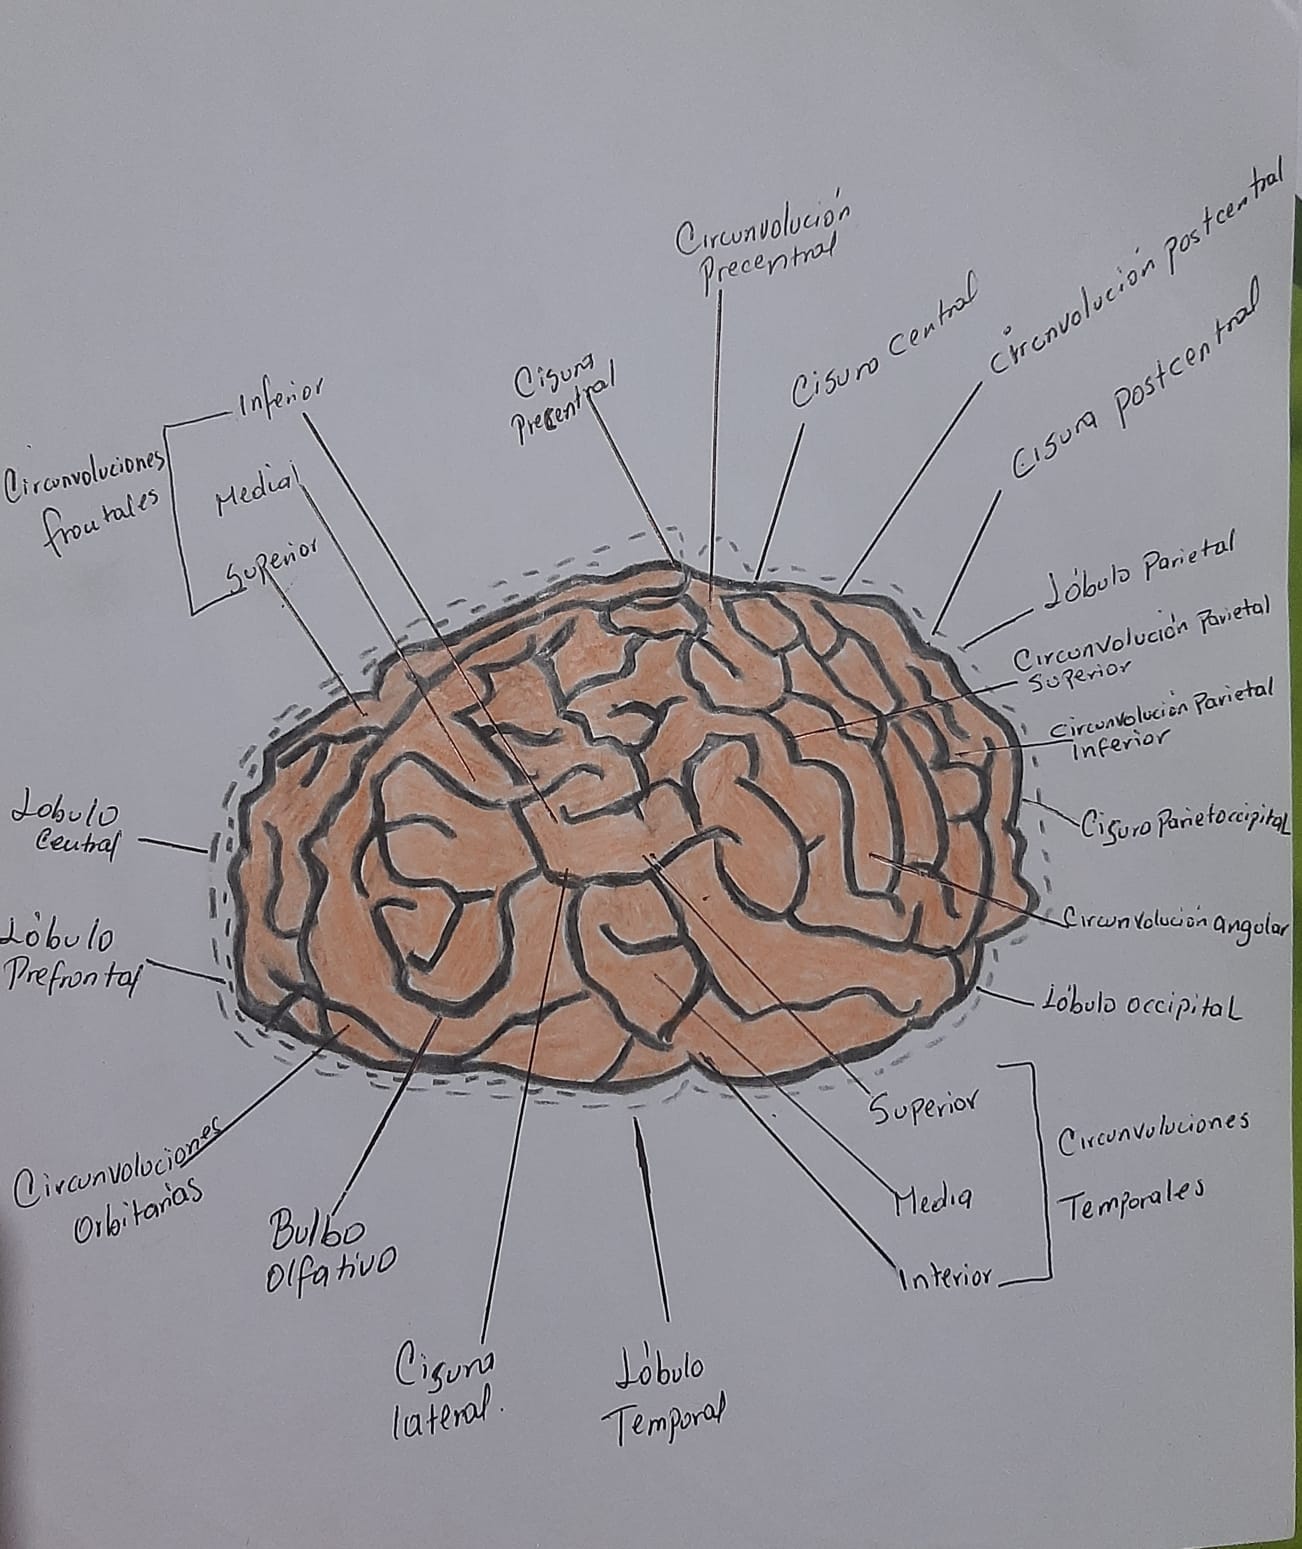 Circunvolución
Precentral
Circunvolución postcentral
Cisura Central
Cisura postcentral
Cisura
Precentral
Inferior
Circunvoluciones
frontales
Medial
Superior
Lóbulo Parietal
Circunvolución Parietal
Superior
Circunvolución Parietal
Inferior
Lobulo
Central
Cisura Parietoccipital
Circunvolución angular
Lóbulo
Prefrontal
Lóbulo occipital
Superior
Circunvoluciones
Temporales
Media
Interior
Circunvoluciones
Orbitarias
Bulbo
Olfativo
Cisura
lateral.
Lóbulo
Temporal